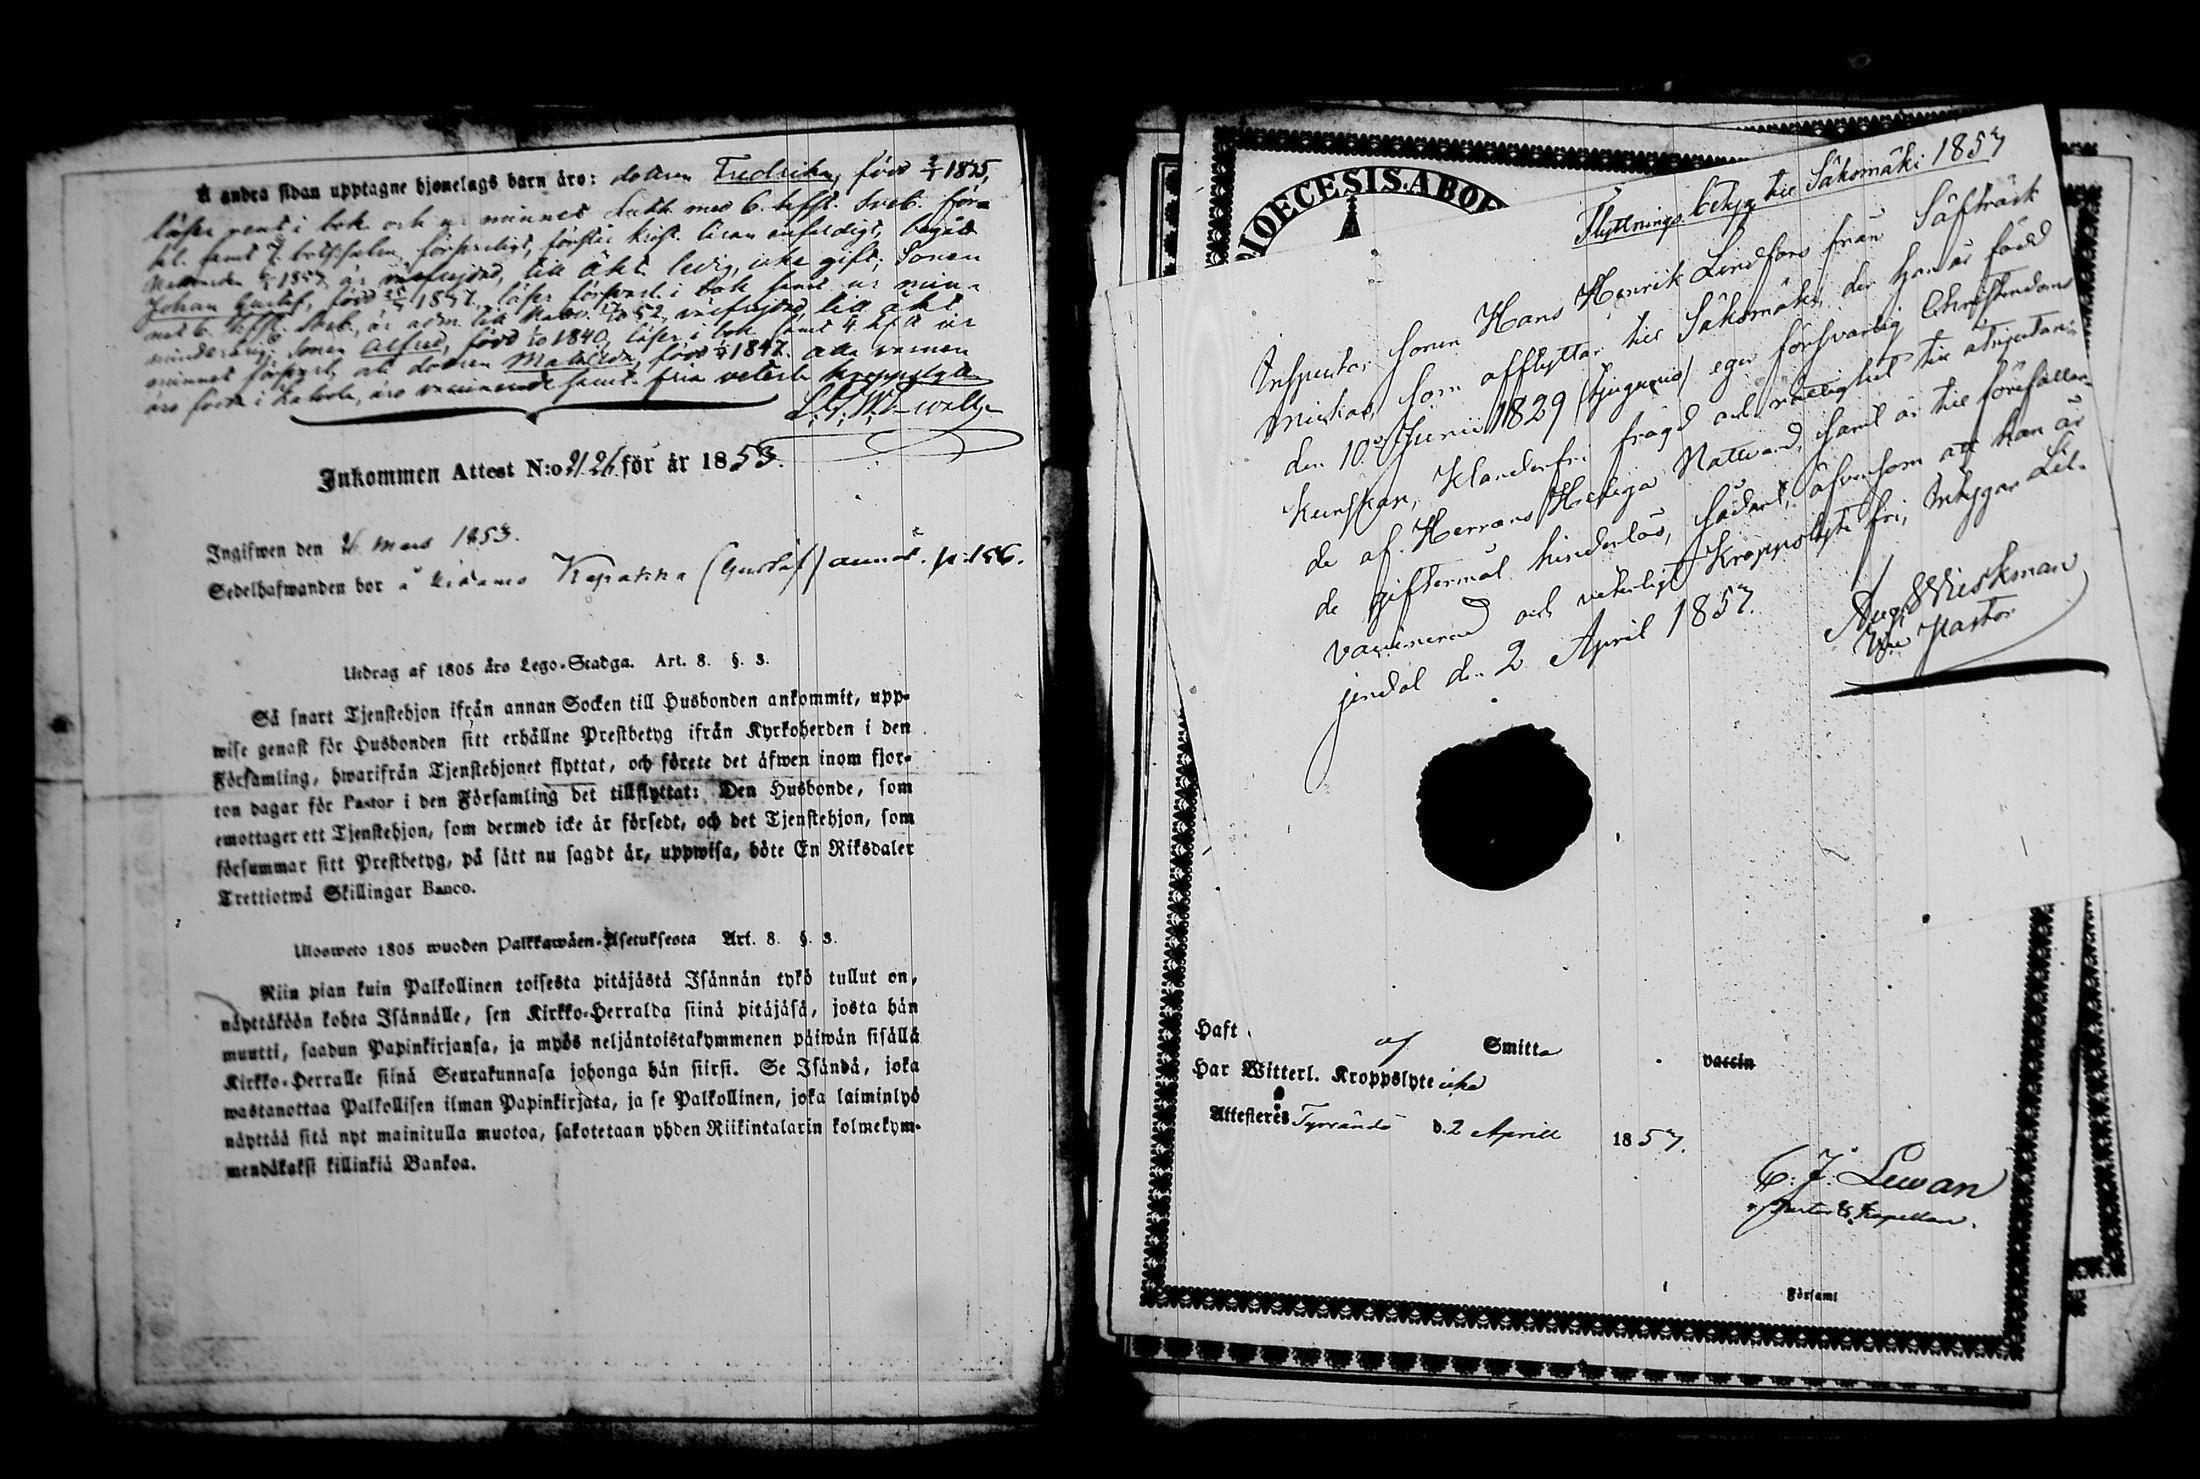 Å andra sidan upptagne hjonelags barn äro: dottern Fredrika, född 1835,
läser rent i bok och ur minnet Luth. med 6. hfst. Sveb. förk.
förl. samt 7. botps:salm. försvarligt, förstår krist. läran enfaldigt, begått
Nattvarden 1857, är välfrejdad, till äkt. ledig, icke gift; Sonen
Johan Gustaf, född 1837, läser försvarl. i bok samt ur min-
net 6. hfst. Sveb., är adm. till Nattv. 52, välfrejdad, till äkt.
minderårig; Sonen Alfred, född 1840, läser i bok samt 4 hfst ur
minnet försvarl. och dottern Mathilda, född 1847. Alla barnen
äro födde i, äro vaccinerade samt fria veterl. kroppslyte.
Inkommen Attest N:o 26. för år 1853.
Ingifwen den 26 Mars 1853.
Sedelhafwanden bor å Kepakka (Gustaf) annot. p. 156.
Utdrag af 1805 års Lego-Stadga. Art. 8. §. 3.
Så snart Tjenstehjon ifrån annan Socken till Husbonden ankommit, upp-
wise genast för Husbonden sitt erhållne Prestbetyg ifrån Kyrkoherden i den
Församling, hwarifrån Tjenstehjonet flyttat, och förete det äfwen inom fjor-
ton dagar för Pastor i den Församling det tillflyttat: Den Husbonde, som
emottager ett Tjenstehjon, som dermed icke är försedt, och det Tjenstehjon, som
försummar sitt Prestbetyg, på sätt nu sagdt är, uppwisa, böte En Riksdaler
Trettiotwå Skillingar Banco.
Ulosweto 1805 wuoden Palkkawäen-Asetuksesta Art. 8. §. 3.
Niin pian kuin Palkollinen toisesta pitäjästä Isännän tykö tullut on,
näyttäköön kohta Isännälle, sen Kirkko-Herralda siinä pitäjäsä, josta hän
muutti, saadun Papinkirjansa, ja myös neljäntoistakymmenen päiwän sisällä
Kirkko-Herralle siinä Seurakunnasa johonga hän siirsi. Se Isändä, joka
wastanottaa Palkollisen ilman Papinkirjata, ja se Palkollinen, joka laiminlyö
näyttää sitä nyt mainitulla muotoa, sakotetaan yhden Riikintalarin kolmekym-
mendäkaksi killinkiä Bankoa.
DIOECESIS.ABO
Flyttnings betyg till Säksmäki 1857
Inspectors sonen Hans Henrik Lindfors från Säfträsk
som afflyttar till Säksmäki, der han är född
den 10de Junii 1829 (tjugunio) eger försvarlig Christendoms
kunskap, klanderfri frägd och rättighet till åtnjutan-
de af Herrans Heliga Nattvard, samt är till förefallan-
de giftermål hinderlös, sådant, äfvensom att han är
vaccinerad och veterligt kroppslyte fri, intygar Lil-
jendal den 2 April 1857.
Aug. Wieskman
Vice Pastor
Haft af Smitta vaccin
Har Witterl. Kroppslyte icke
Attesteres Tyrväntö d. 2 Aprill 1857.
C. J. Lewan
v. Pastor & Kapellan.
Församl